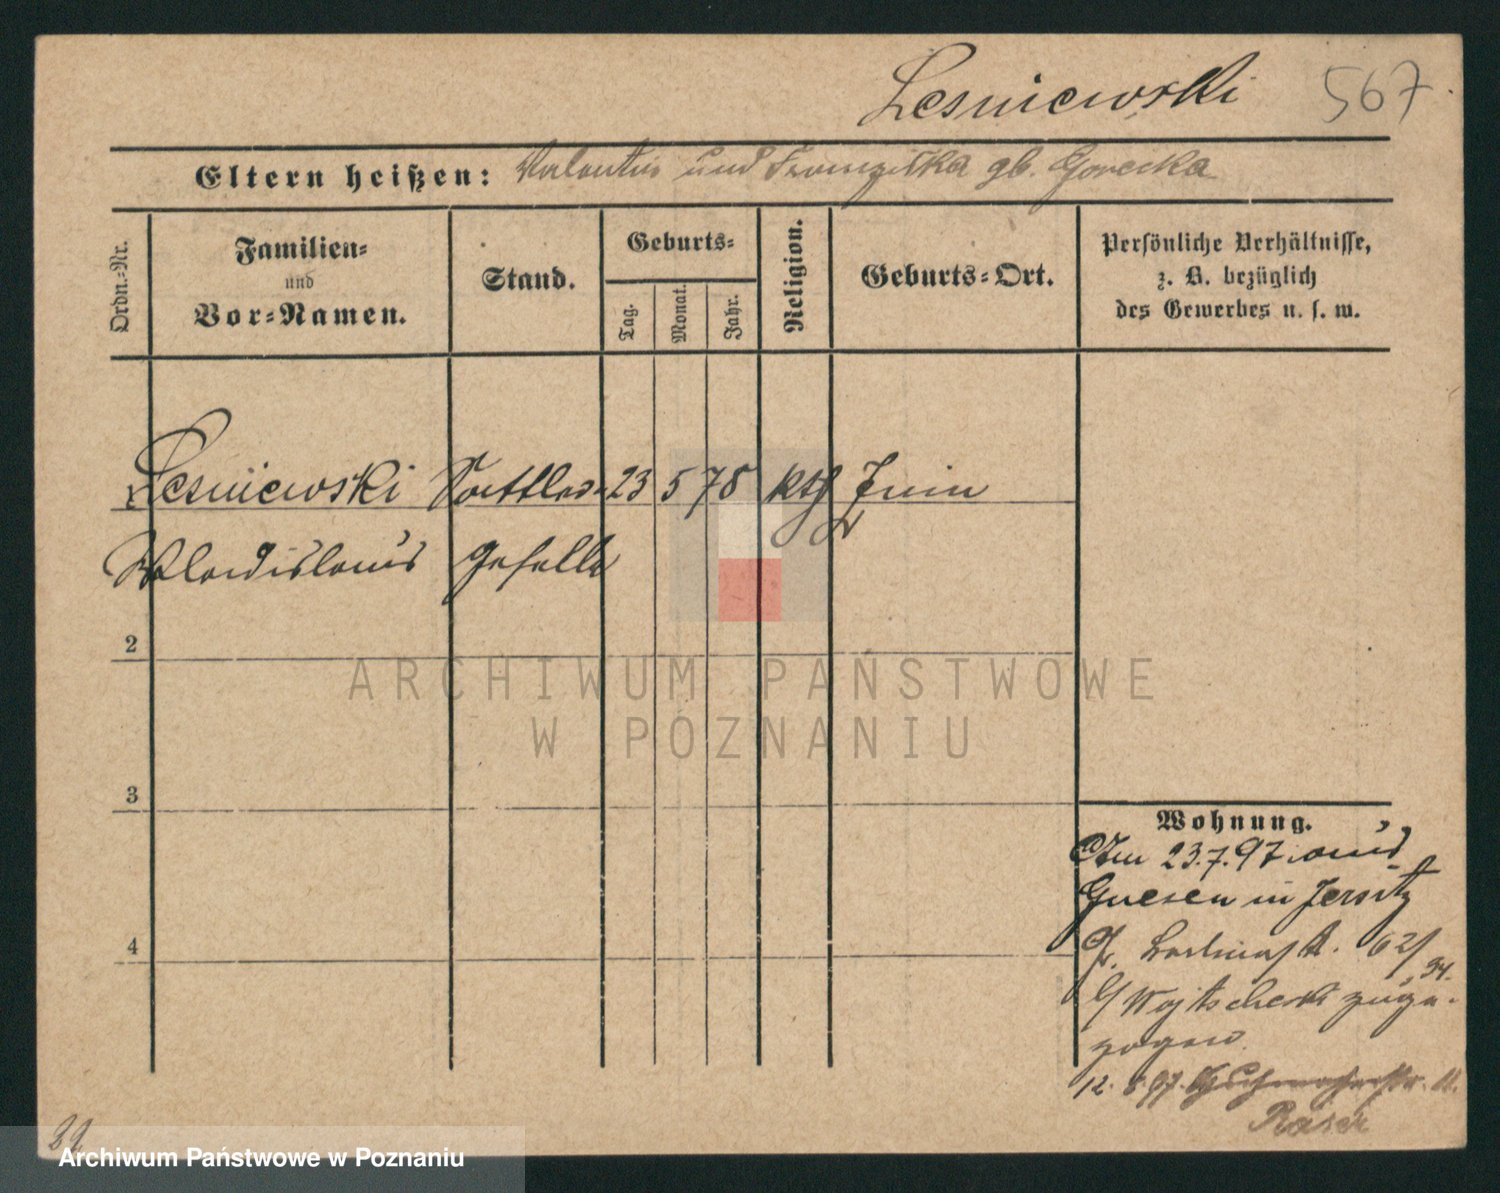 Lesniewski 567
Eltern heißen: Valentin und Franziska gb. Gorecka
Ordn.-Nr.
Familien- und Vor-Namen.
Stand.
Geburts-
Tag.
Monat.
Jahr.
Religion.
Geburts-Ort.
Persönliche Verhältnisse,
z. B. bezüglich
des Gewerbes u. s. w.
Lesniewski Sattler- 23 5 78 kth Znin
Wladislaus geselle
2
3
4
Wohnung.
Am 23.7.97 aus
Gnesen in Jersitz
Gr. Berlinerst. 62/
94.
b/ Wojtschecki zuge-
zogen
12. 8. 97.
ARCHIWUM PAŃSTWOWE
W POZNANIU
Archiwum Państwowe w Poznaniu